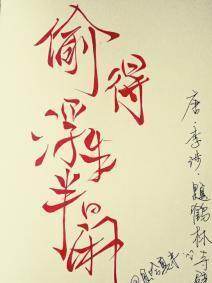 偷得
浮生
半日
闲
唐·李涉·题鹤林寺